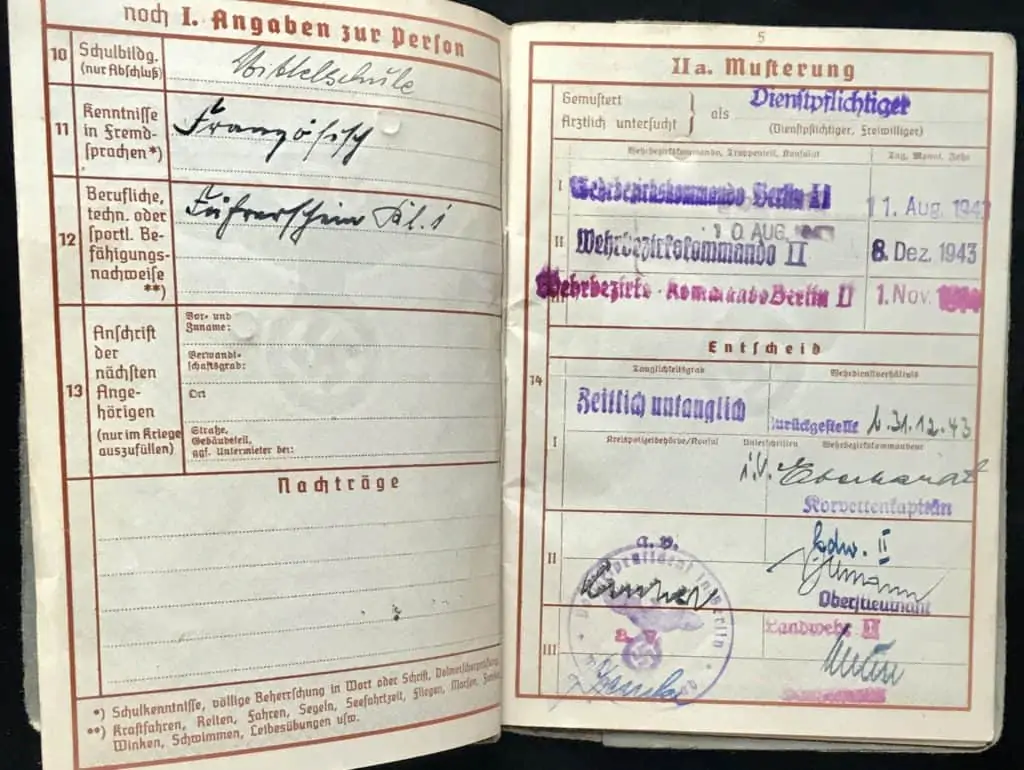 noch I. Angaben zur Person
10 Schulbildg.
(nur Abschluß)
Mittelschule
11 Kenntnisse
in Fremd-
sprachen*)
Französisch
12 Berufliche,
techn. oder
sportl. Be-
fähigungs-
nachweise
**)
Führerschein Kl. 1
13 Anschrift
der
nächsten
Ange-
hörigen
(nur im Kriege
auszufüllen)
Vor- und
Zuname:
Verwandt-
schaftsgrad:
Ort
Straße,
Gebäudeteil,
ggf. Untermieter bei:
Nachträge
*) Schulkenntnisse, völlige Beherrschung in Wort oder Schrift, Dolmetscherprüfung
**) Kraftfahren, Reiten, Fahren, Segeln, Seefahrtzeit, Fliegen, Morsen, Funken
Winken, Schwimmen, Leibesübungen usw.
5
IIa. Musterung
Gemustert
Ärztlich untersucht
als Dienstpflichtiger
(Dienstpflichtiger, Freiwilliger)
Wehrbezirkskommando, Truppenteil, Konsulat
Tag, Monat, Jahr
I Wehrbezirkskommando Berlin II
11. Aug. 1943
10 AUG.
II Wehrbezirkskommando II
8. Dez. 1943
Wehrbezirks-Kommando Berlin II
1. Nov.
Entscheid
14
Tauglichkeitsgrad
Wehrdienstverhältnis
I Zeitlich untauglich
zurückgestellt b. 31.12.43
Kreispolizeibehörde/Konsul
Unterschriften
Wehrbezirkskommandeur
i.V. Eberhardt
Korvettenkapitän
II
Ldw. II
Oberstleutnant
III
Landwehr II